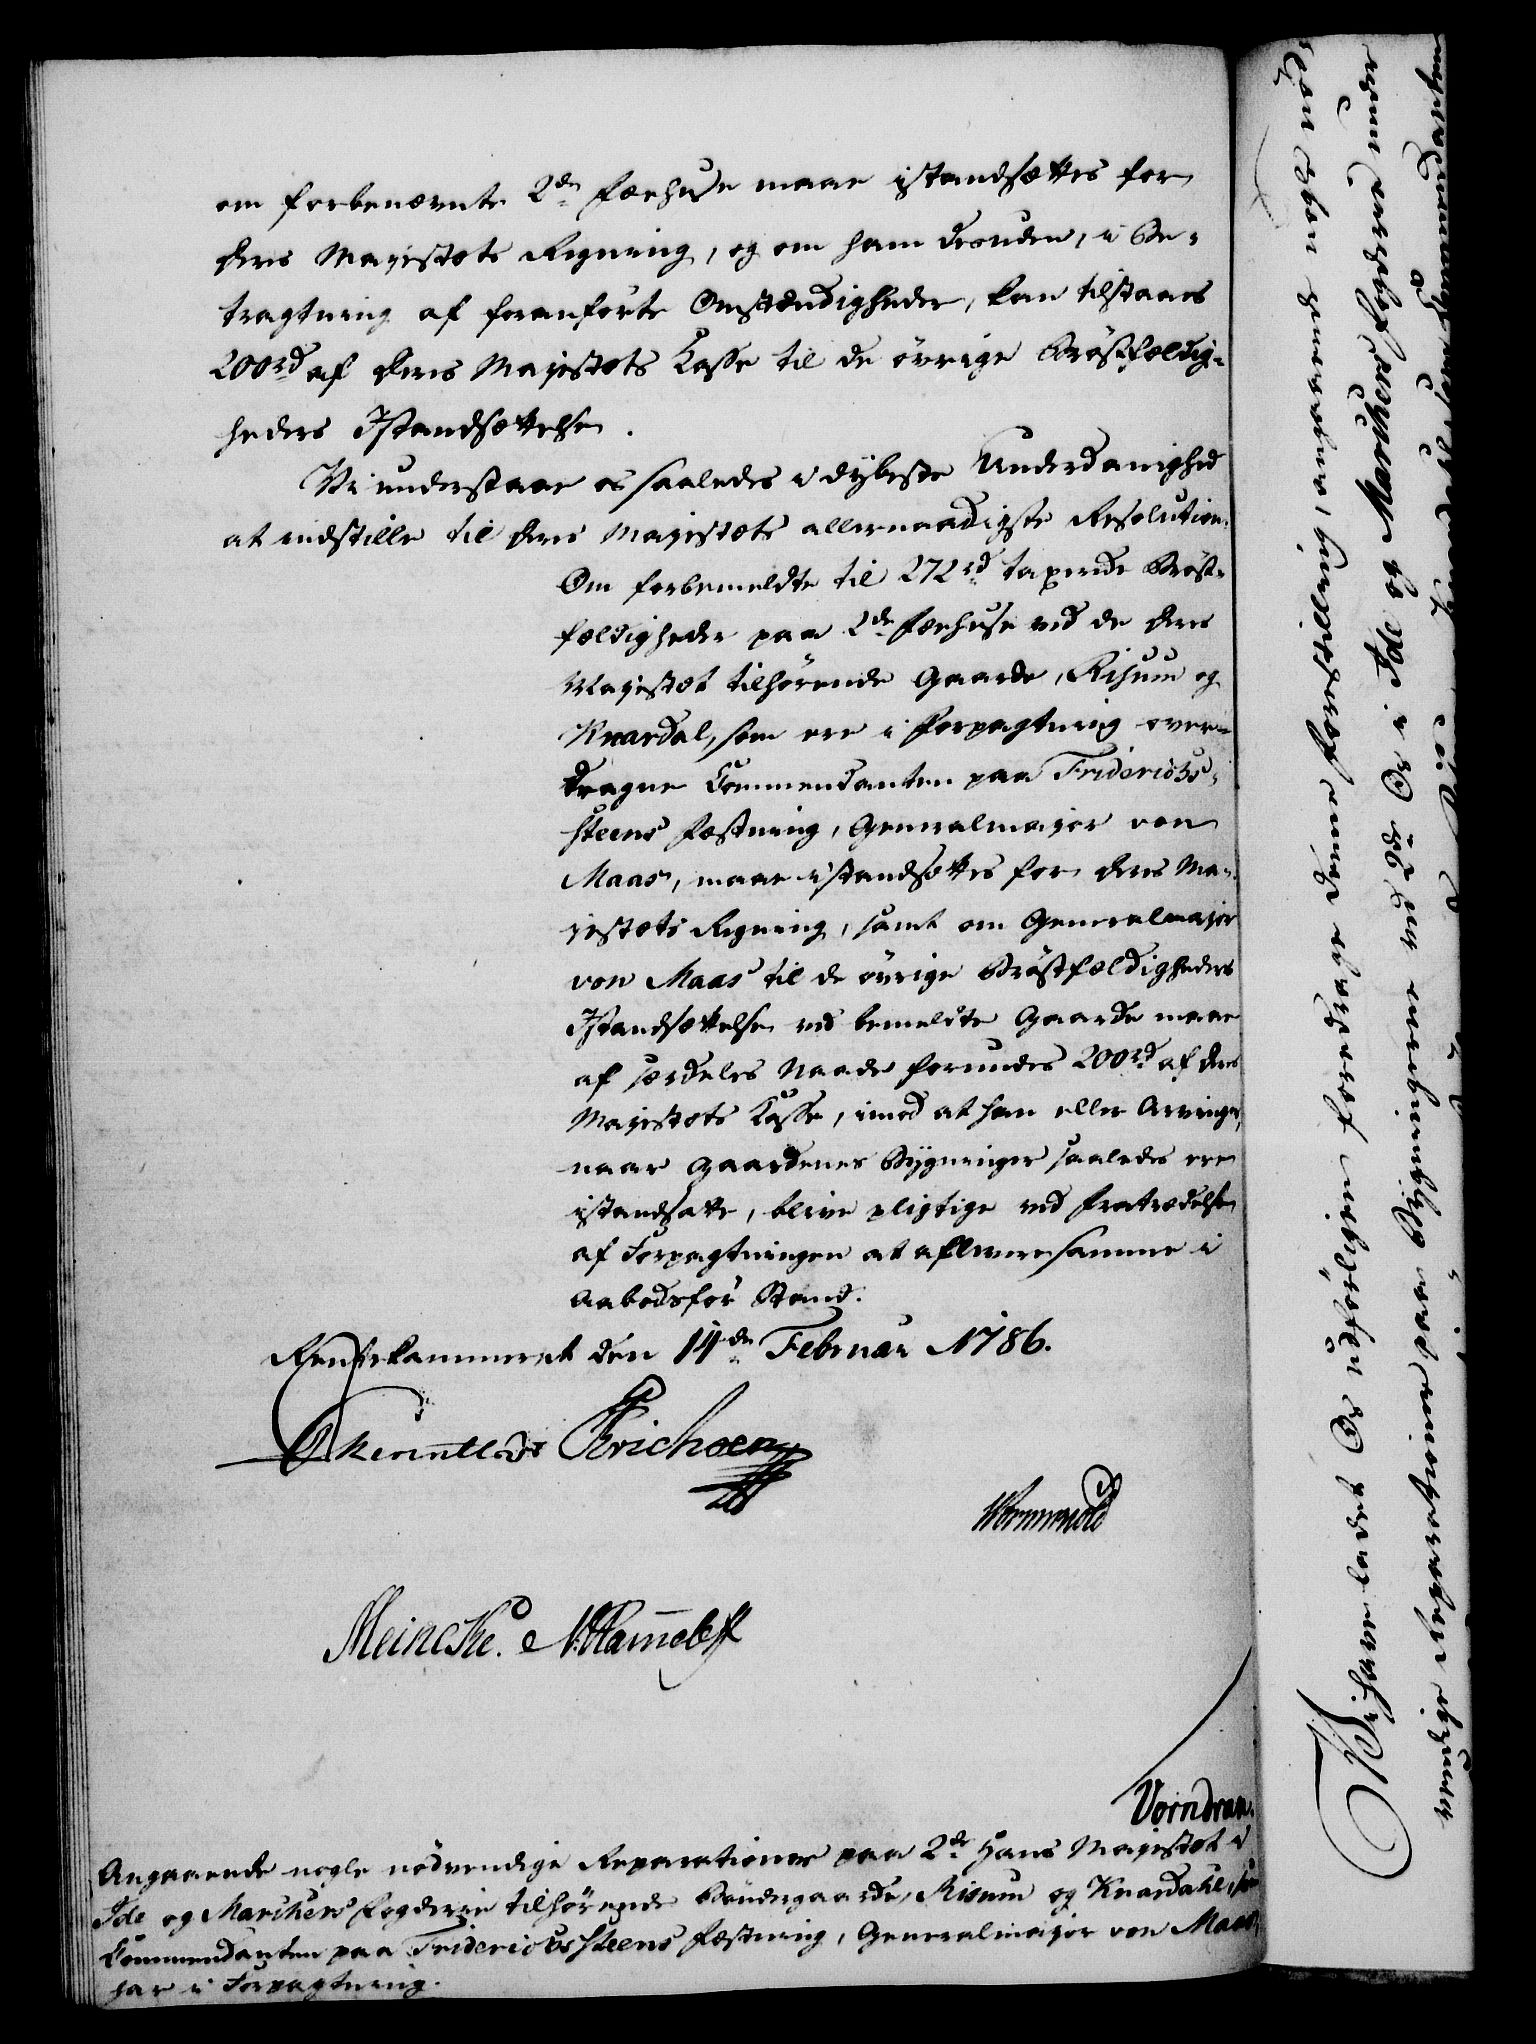 om forbenævnte 2de Fæehuse maae istandsættes for
Deres Majestæts Regning, og om ham desuden, i Be-
tragtning af foranførte Omstændigheder, kan tilstaaes
200rd af Deres Majestæts Casse til de øvrige Bröstfældig-
heders Istandsættelse.
Vi understaae os saaledes i dybeste Underdanighed
at indstille til Deres Majestæts allernaadigste Resolution:
Om forbemeldte til 272rd taxerede Bröst-
fældigheder paa 2de Fæehuse ved de Deres
Majestæt tilhörende Gaarde, Risum og
Knardal, som ere i Forpagtning over-
dragne Commendanten paa Friderichs-
steens Fæstning, Generalmajor von
Maas, maae istandsættes for Deres Ma-
jestæts Regning, samt om Generalmajor
von Maas til de øvrige Bröstfældigheders
Istandsættelse ved bemeldte Gaarde maae
af særdeles Naade forundes 200rd af Deres
Majestæts Casse, imod at han eller Arvinger,
naar Gaardenes Bygninger saaledes ere
istandsatte, blive pligtige ved Fratrædelsen
af Forpagtningen at aflevere samme i
Aabodsför Stand.
Rentekammeret den 14de Februar 1786.
Erichsen
Wormskiold
Meincke.
Vorndran.
Angaaende nogle nödvendige Reparationer paa 2de Hans Majestæt i
Ide og Markers Fogderie tilhörende Böndergaarde, Risum og Knardahl, som
Commendanten paa Friderichssteens Fæstning, Generalmajor von Maas,
har i Forpagtning.
Vi have ladet Os udförligen foredrage denne Forestilling, ovenanförte
vendige Reparationer paa Bygningerne ved de i Ide og Markers Fogderie under